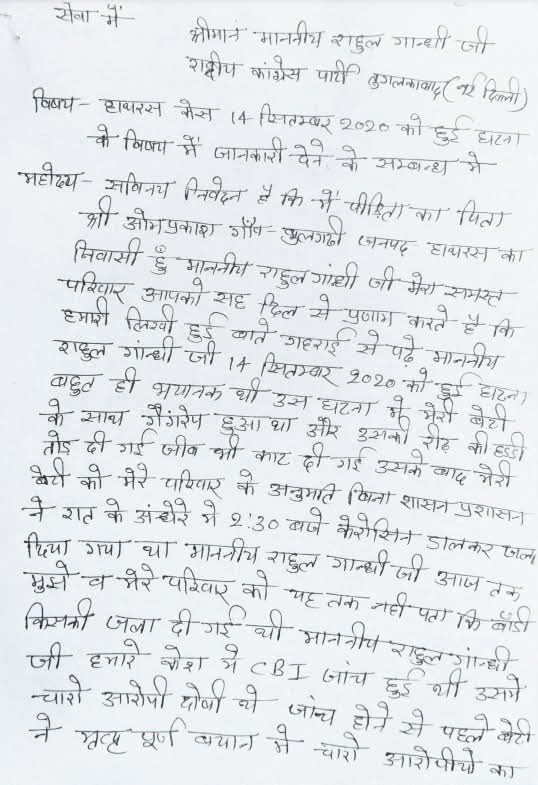 सेवा में
श्रीमान माननीय राहुल गान्धी जी
राष्ट्रीय कांग्रेस पार्टी तुगलकावाद (नई दिल्ली)
विषय - हाथरस केस 14 सितम्बर 2020 को हुई घटना
के विषय में जानकारी देने के सम्बन्ध में
महोदय - सविनय निवेदन है कि मैं पीडिता का पिता
श्री ओमप्रकाश गाँव - बुलगढी जनपद हाथरस का
निवासी हुँ माननीय राहुल गांधी जी मेरा समस्त
परिवार आपको सह दिल से प्रणाम करते है कि
हमारी लिखी हुई बाते गहराई से पढ़े माननीय
राहुल गांन्धी जी 14 सितम्बर 2020 को हुई घटना
बहुत ही भयानक थी उस घटना मे मेरी बेटी
के साथ गैंगरेप हुआ था और उसकी रीढ़ की हडडी
तोड दी गई जीव भी काट दी गई उसके बाद मेरी
बेटी को मेरे परिवार के अनुमति बिना शासन प्रशासन
ने रात के अंधेरे मे 2:30 बजे केरोसिन डालकर जला
दिया गया था माननीय राहुल गान्धी जी आज तक
मुझे व मेरे परिवार को यह तक नही पता कि बॉडी
किसकी जला दी गई थी माननीय राहुल गांन्धी
जी हमारे केश मे CBI जांच हुई थी उसमे
चारो आरोपी दोषी थे जांच होने से पहले बेटी
ने मृत्यु पूर्ण बयान मे चारो आरोपीयो का